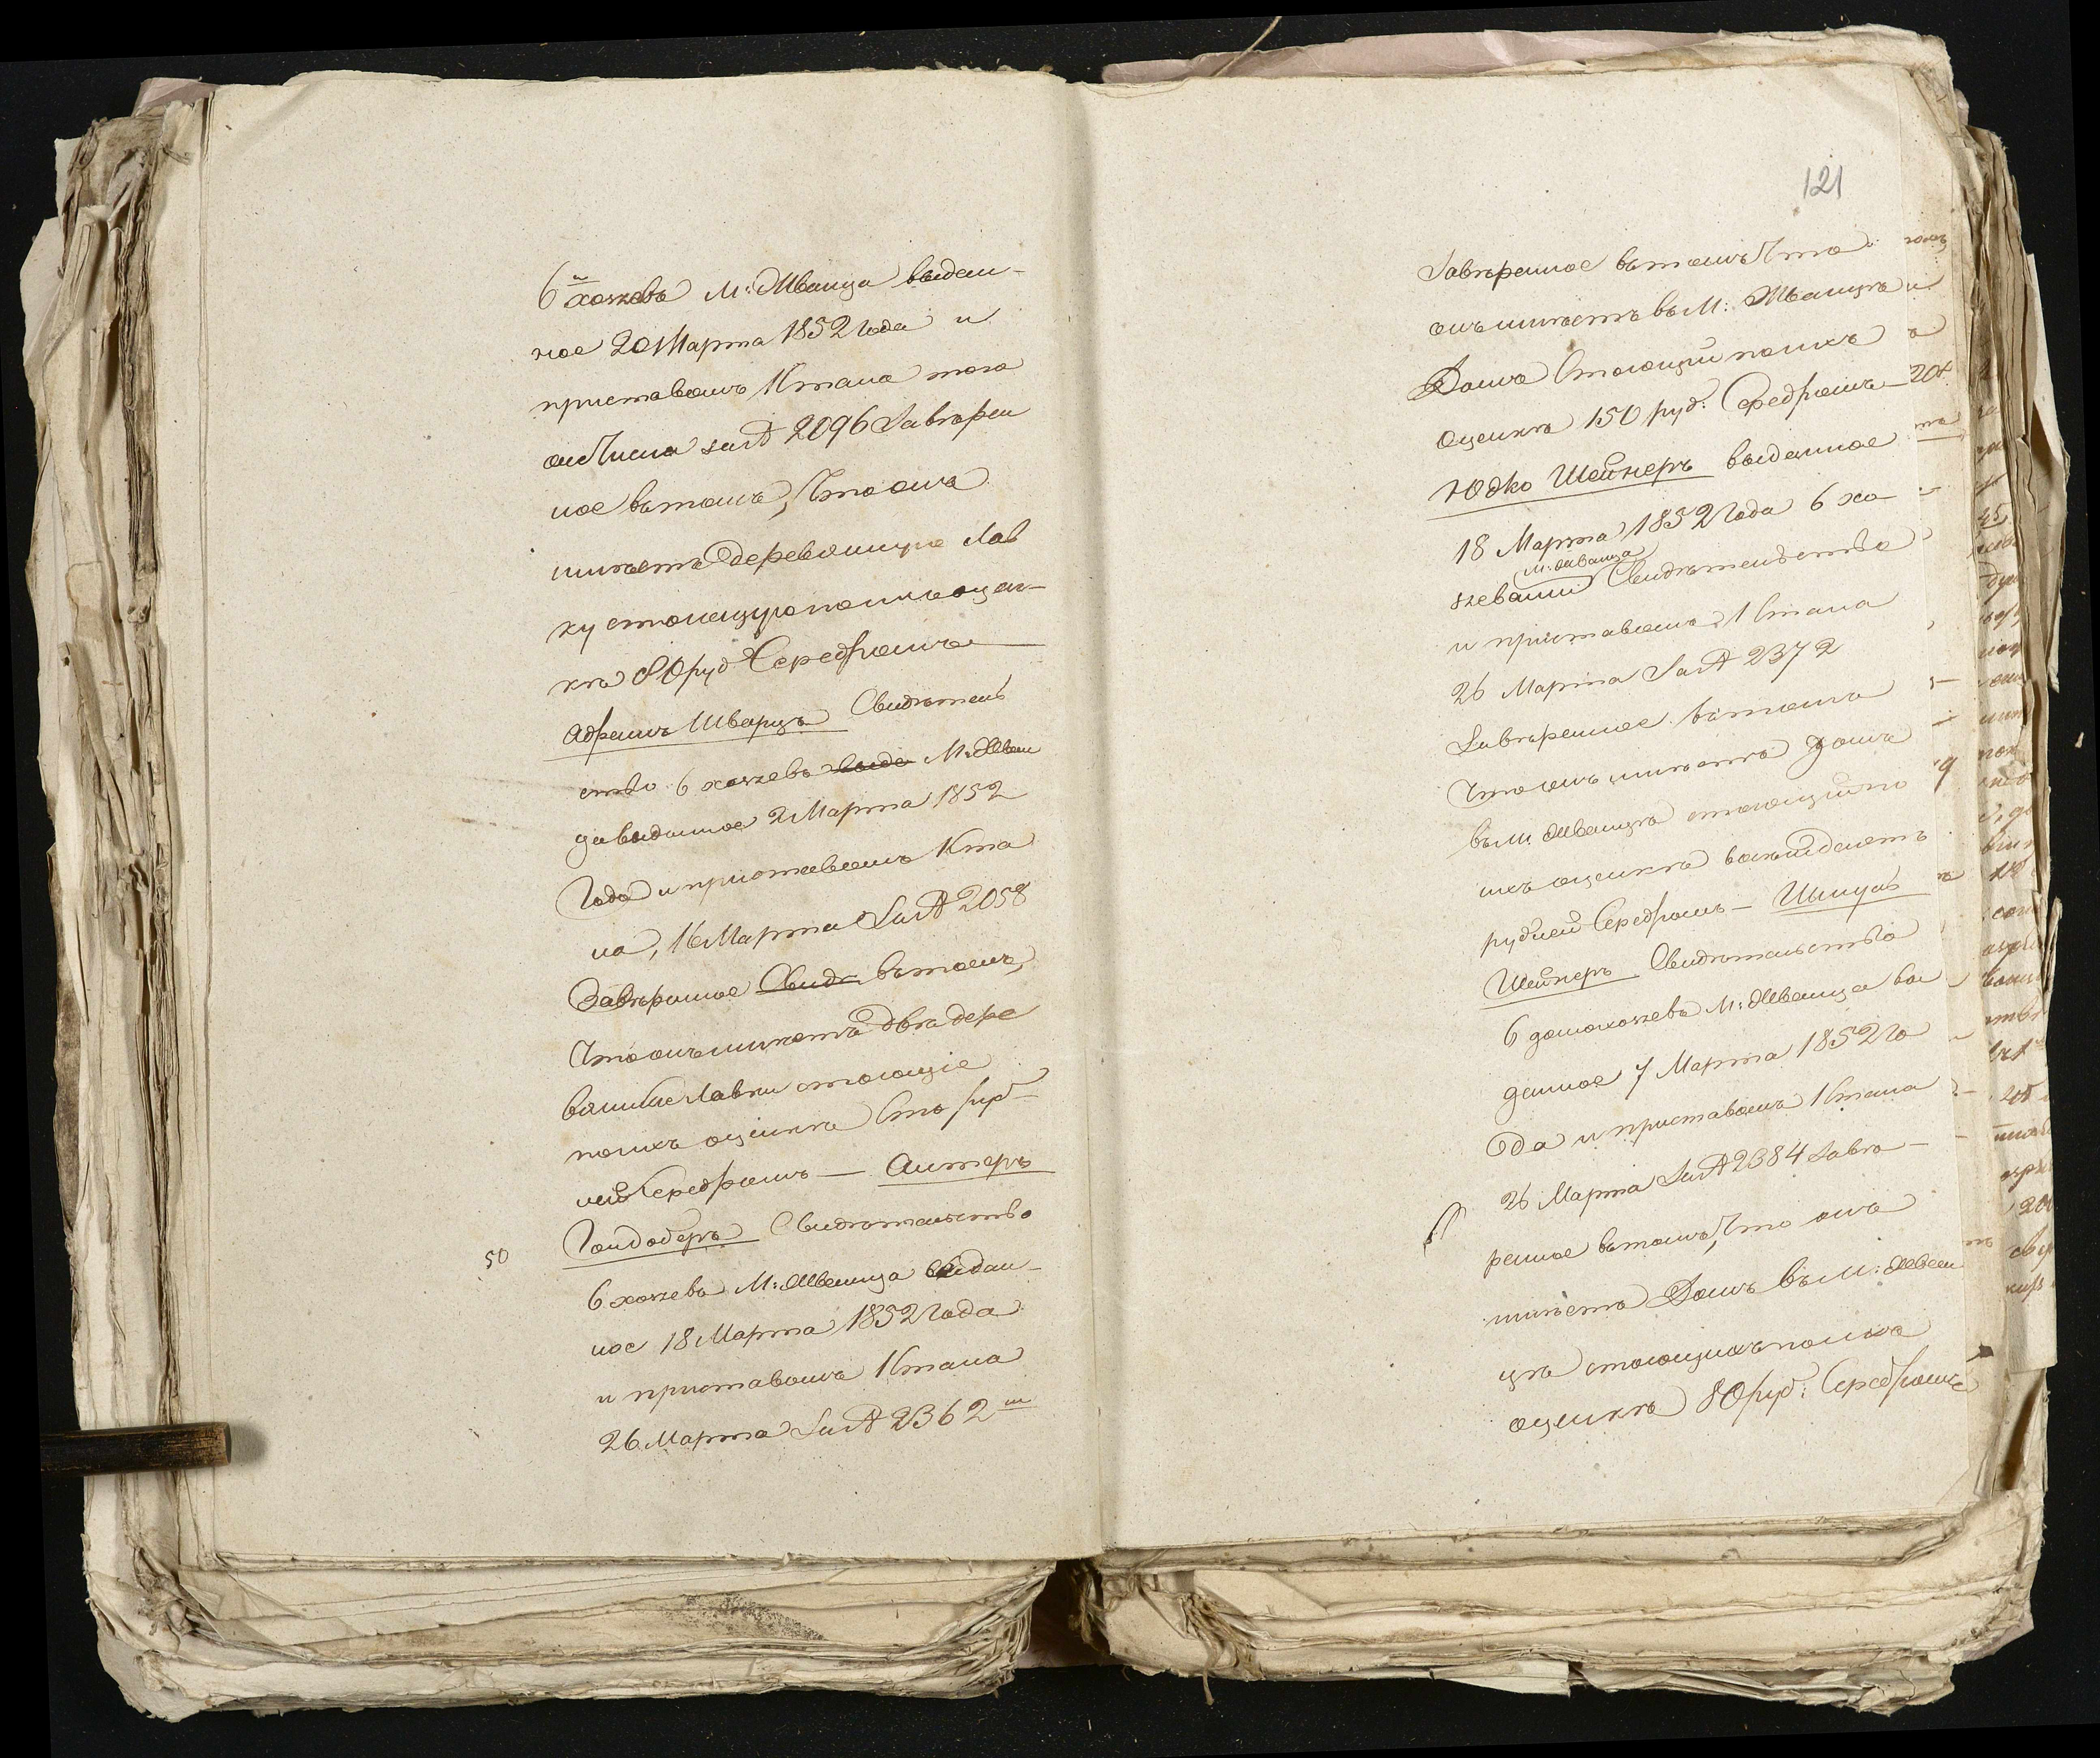 6ᵘ хозяевъ М: Жванца выдан-
ное 20 Марта 1852 года и
приставомъ 1 стана того
ож числа за № 2096 Завѣрен
ное въ томъ, что онъ
имѣетъ деревянную лав
ку стоющую по ихъ оцен-
кѣ 80 руб Серебромъ
Абрамъ Шварцъ Свидѣтель
ство 6 хозяевъ выда М: Жван
ца выданное 2 Марта 1852
года и приставомъ 1 ста
на, 16 Марта За № 2058
Завѣренное Свидѣ въ томъ,
что онъ имѣетъ двѣ дере
вянные лавки стоющіе
по ихъ оценкѣ сто руб-
лей Серебромъ — Антеръ
50
Гондоберъ Свидѣтельство
6 хозяевъ М: Жванца выдан-
ное 18 Марта 1852 года
и приставомъ 1 стана
26 Марта За № 2362
121
Завѣренное въ томъ что
онъ имѣетъ въ М: Жванцѣ
Домъ стоющій по ихъ
оценкѣ 150 руб: Серебромъ —
Юдко Шейнеръ выданное
18 Марта 1852 года 6 хо-
М: Жванца
зяевами Свидѣтельство
и приставомъ 1 стана
26 Марта За № 2372
Завѣренное въ томъ
что онъ имѣетъ домъ
въ М. Жванцѣ стоющій по
ихъ оценкѣ восѣмдесетъ
рублей Серебромъ — Шмуль
Шейнеръ Свидѣтельство
6 домохозяевъ М: Жванца вы
данное 7 Марта 1852 го
да и приставомъ 1 стана
26 Марта За № 2384 Завѣ-
ренное въ томъ, что онъ
имѣетъ Домъ въ М: Жван
цѣ стоющихъ по ихъ
оценкѣ 80 руб: Серебромъ